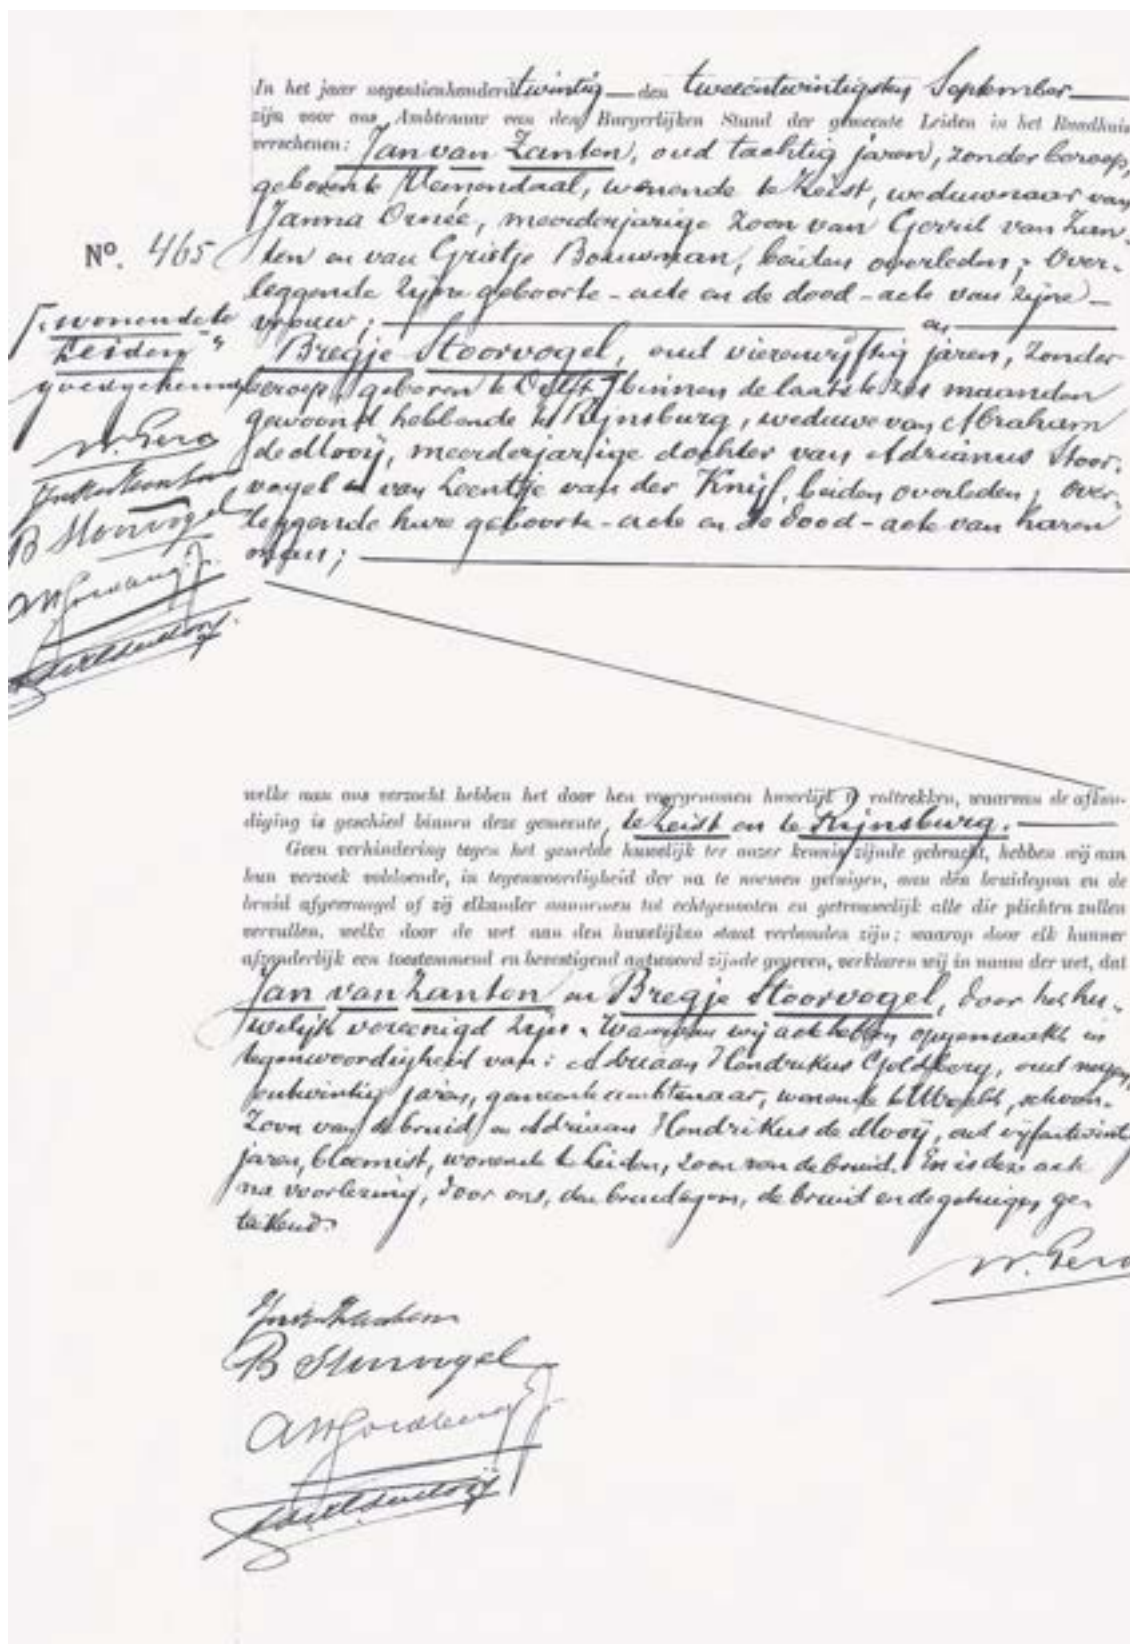 In het jaar negentienhonderd twintig den tweeentwintigsten September
zijn voor ons Ambtenaar van den Burgerlijken Stand der gemeente Leiden in het Raadhuis
verschenen: Jan van Zanten, oud tachtig jaren, zonder beroep,
geboren te Veenendaal, wonende te Zeist, weduwnaar van
Janna Ornée, meerderjarige zoon van Gerrit van Zan-
No. 465
ten en van Grietje Bouwman, beiden overleden; over-
leggende zijne geboorte-acte en de dood-acte van zijne
vrouw; en
Bregje Stoorvogel, oud vierenvijftig jaren, zonder
beroep, geboren te Delft, binnen de laatste zes maanden
gewoond hebbende te Rijnsburg, weduwe van Abraham
de Mooij, meerderjarige dochter van Adrianus Stoor-
vogel en van Leentje van der Knijf, beiden overleden; over-
leggende hare geboorte-acte en de dood-acte van haren
man;
"wonende te
Leiden"
goedgekeurd
B Stoorvogel
welke aan ons verzocht hebben het door hen voorgenomen huwelijk te voltrekken, waarvan de afkon-
diging is geschied binnen deze gemeente, te Zeist en te Rijnsburg.
Geen verhindering tegen het gemelde huwelijk ter onzer kennis zijnde gebracht, hebben wij aan
hun verzoek voldoende, in tegenwoordigheid der na te noemen getuigen, aan den bruidegom en de
bruid afgevraagd of zij elkander aannemen tot echtgenooten en getrouwelijk alle die plichten zullen
vervullen, welke door de wet aan den huwelijken staat verbonden zijn; waarop door elk hunner
afzonderlijk een toestemmend en bevestigend antwoord zijnde gegeven, verklaren wij in naam der wet, dat
Jan van Zanten en Bregje Stoorvogel, door het hu-
welijk vereenigd zijn. Waarvan wij acte hebben opgemaakt in
tegenwoordigheid van: Adriaan Hendrikus Goldberg, oud negen
entwintig jaren, gemeente ambtenaar, wonende te Utrecht, schoon-
zoon van de bruid en Adrianus Hendrikus de Mooij, oud vijfentwintig
jaren, bloemist, wonende te Leiden, zoon van de bruid. En is deze acte
na voorlezing, door ons, den bruidegom, de bruid en de getuigen ge-
tekend.
B Stoorvogel